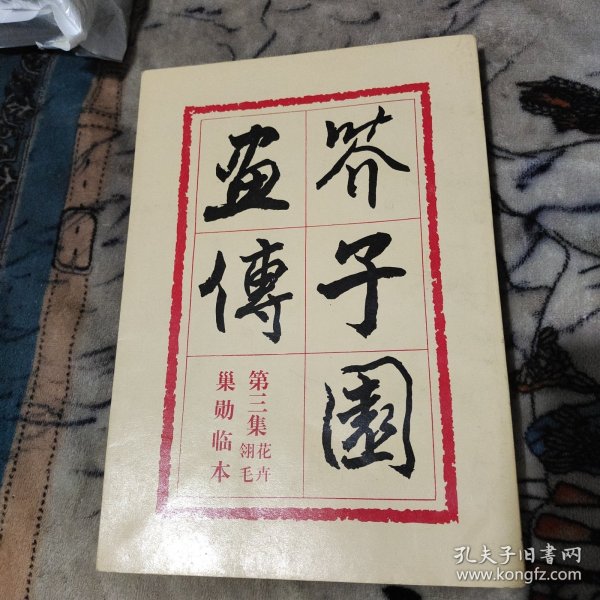 芥子園
画傳
第三集 花卉 翎毛
巢勋临本
孔夫子旧书网
www.kongfz.com